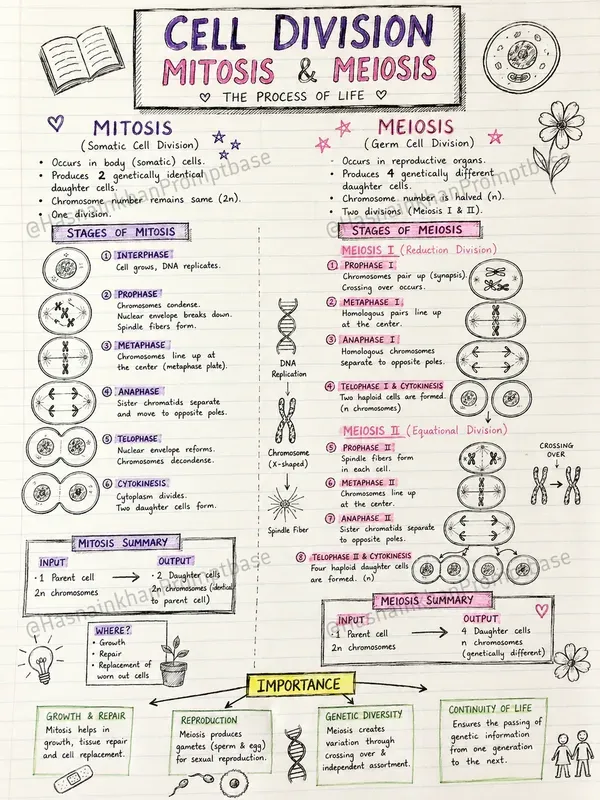 CELL DIVISION
MITOSIS & MEIOSIS
♡ THE PROCESS OF LIFE ♡
MITOSIS
(Somatic Cell Division)
• Occurs in body (somatic) cells.
• Produces 2 genetically identical
daughter cells.
• Chromosome number remains same (2n).
• One division.
STAGES OF MITOSIS
① INTERPHASE
Cell grows, DNA replicates.
② PROPHASE
Chromosomes condense.
Nuclear envelope breaks down.
Spindle fibers form.
③ METAPHASE
Chromosomes line up at
the center (metaphase plate).
④ ANAPHASE
Sister chromatids separate
and move to opposite poles.
⑤ TELOPHASE
Nuclear envelope reforms.
Chromosomes decondense.
⑥ CYTOKINESIS
Cytoplasm divides.
Two daughter cells form.
MITOSIS SUMMARY
INPUT
• 1 Parent cell
2n chromosomes
OUTPUT
• 2 Daughter cells
2n chromosomes (identical
to parent cell)
WHERE?
• Growth
• Repair
• Replacement of
worn out cells
DNA
Replication
Chromosome
(X-shaped)
Spindle Fiber
MEIOSIS
(Germ Cell Division)
• Occurs in reproductive organs.
• Produces 4 genetically different
daughter cells.
• Chromosome number is halved (n).
• Two divisions (Meiosis I & II).
STAGES OF MEIOSIS
MEIOSIS I (Reduction Division)
① PROPHASE I
Chromosomes pair up (synapsis).
Crossing over occurs.
② METAPHASE I
Homologous pairs line up
at the center.
③ ANAPHASE I
Homologous chromosomes
separate to opposite poles.
④ TELOPHASE I & CYTOKINESIS
Two haploid cells are formed.
(n chromosomes)
MEIOSIS II (Equational Division)
⑤ PROPHASE II
Spindle fibers form
in each cell.
⑥ METAPHASE II
Chromosomes line up
at the center.
⑦ ANAPHASE II
Sister chromatids separate
to opposite poles.
⑧ TELOPHASE II & CYTOKINESIS
Four haploid daughter cells
are formed. (n)
CROSSING
OVER
MEIOSIS SUMMARY
INPUT
1 Parent cell
2n chromosomes
OUTPUT
4 Daughter cells
n chromosomes
(genetically different)
IMPORTANCE
GROWTH & REPAIR
Mitosis helps in
growth, tissue repair
and cell replacement.
REPRODUCTION
Meiosis produces
gametes (sperm & egg)
for sexual reproduction.
GENETIC DIVERSITY
Meiosis creates
variation through
crossing over &
independent assortment.
CONTINUITY OF LIFE
Ensures the passing of
genetic information
from one generation
to the next.
@HasnainkhanPromptbase
@HasnainkhanPromptbase
@HasnainkhanPromptbase
@HasnainkhanPromptbase